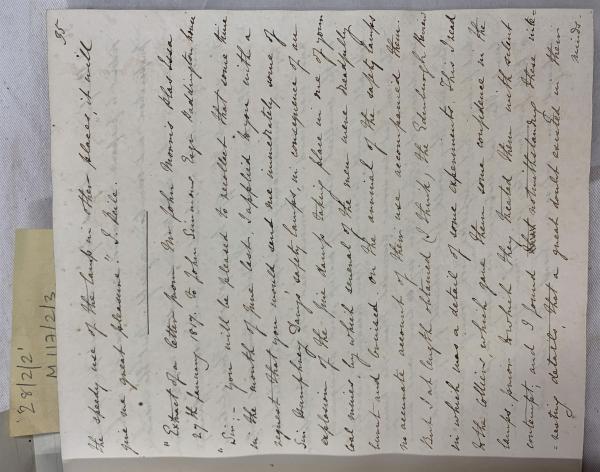 35
the speedy use of the lamp in other places, it will
give me great pleasure." J. Buddle.
"Extract of a letter from Mr John Morris Plas Issa
27th January 1817. to John Simmons Esqr Paddington house
"Sir:- you will be pleased to recollect that some time
in the month of June last I applied to you with a
request that you would send me immediately some of
Sir Humphrey Davy's safety lamps, in consequence of an
explosion of the fire damps taking place in one of your
Coal mines by which several of the men were dreadfully
burnt and bruised. On the arrival of the safety lamps
no accurate account of their use accompanied them.
But I at length obtained (I think) the Edinburgh Review
in which was a detail of some experiments. This I read
to the Colliers, which gave them some confidence in the
lamps prior to which they treated them with silent
contempt; and I found notwithstanding these inte-
-resting details, that a great doubt existed in their
minds.
'28/2/2'
M 117/2/3